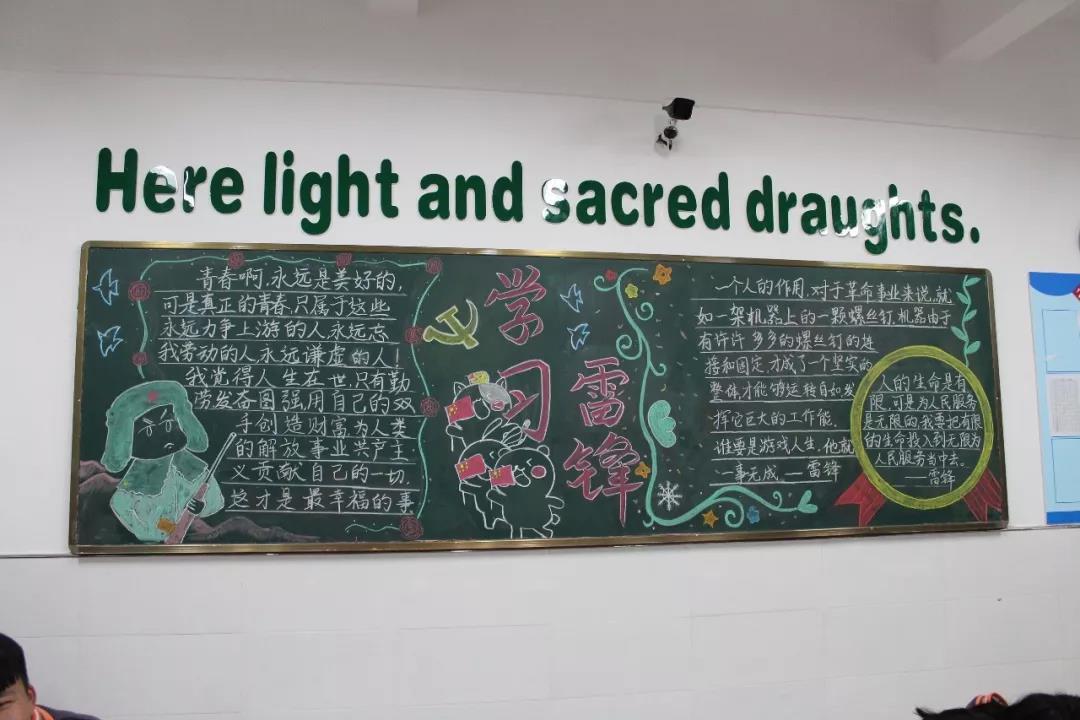 Here light and sacred draughts.
青春啊,永远是美好的,
可是真正的青春,只属于这些
永远力争上游的人,永远忘
我劳动的人,永远谦虚的人!
我觉得人生在世,只有勤
劳发奋图强用自己的双
手创造财富为人类
的解放事业共产主
义贡献自己的一切,
这才是最幸福的事
学习
雷锋
一个人的作用,对于革命事业来说,就
如一架机器上的一颗螺丝钉,机器由于
有许许多多的螺丝钉的连
接和固定,才成了一个坚实的
整体,才能够运转自如,发
挥它巨大的工作能.
谁要是游戏人生,他就
一事无成 — 雷锋
人的生命是有
限,可是为人民服务
是无限的,我要把有限
的生命投入到无限为
人民服务当中去。
—雷锋